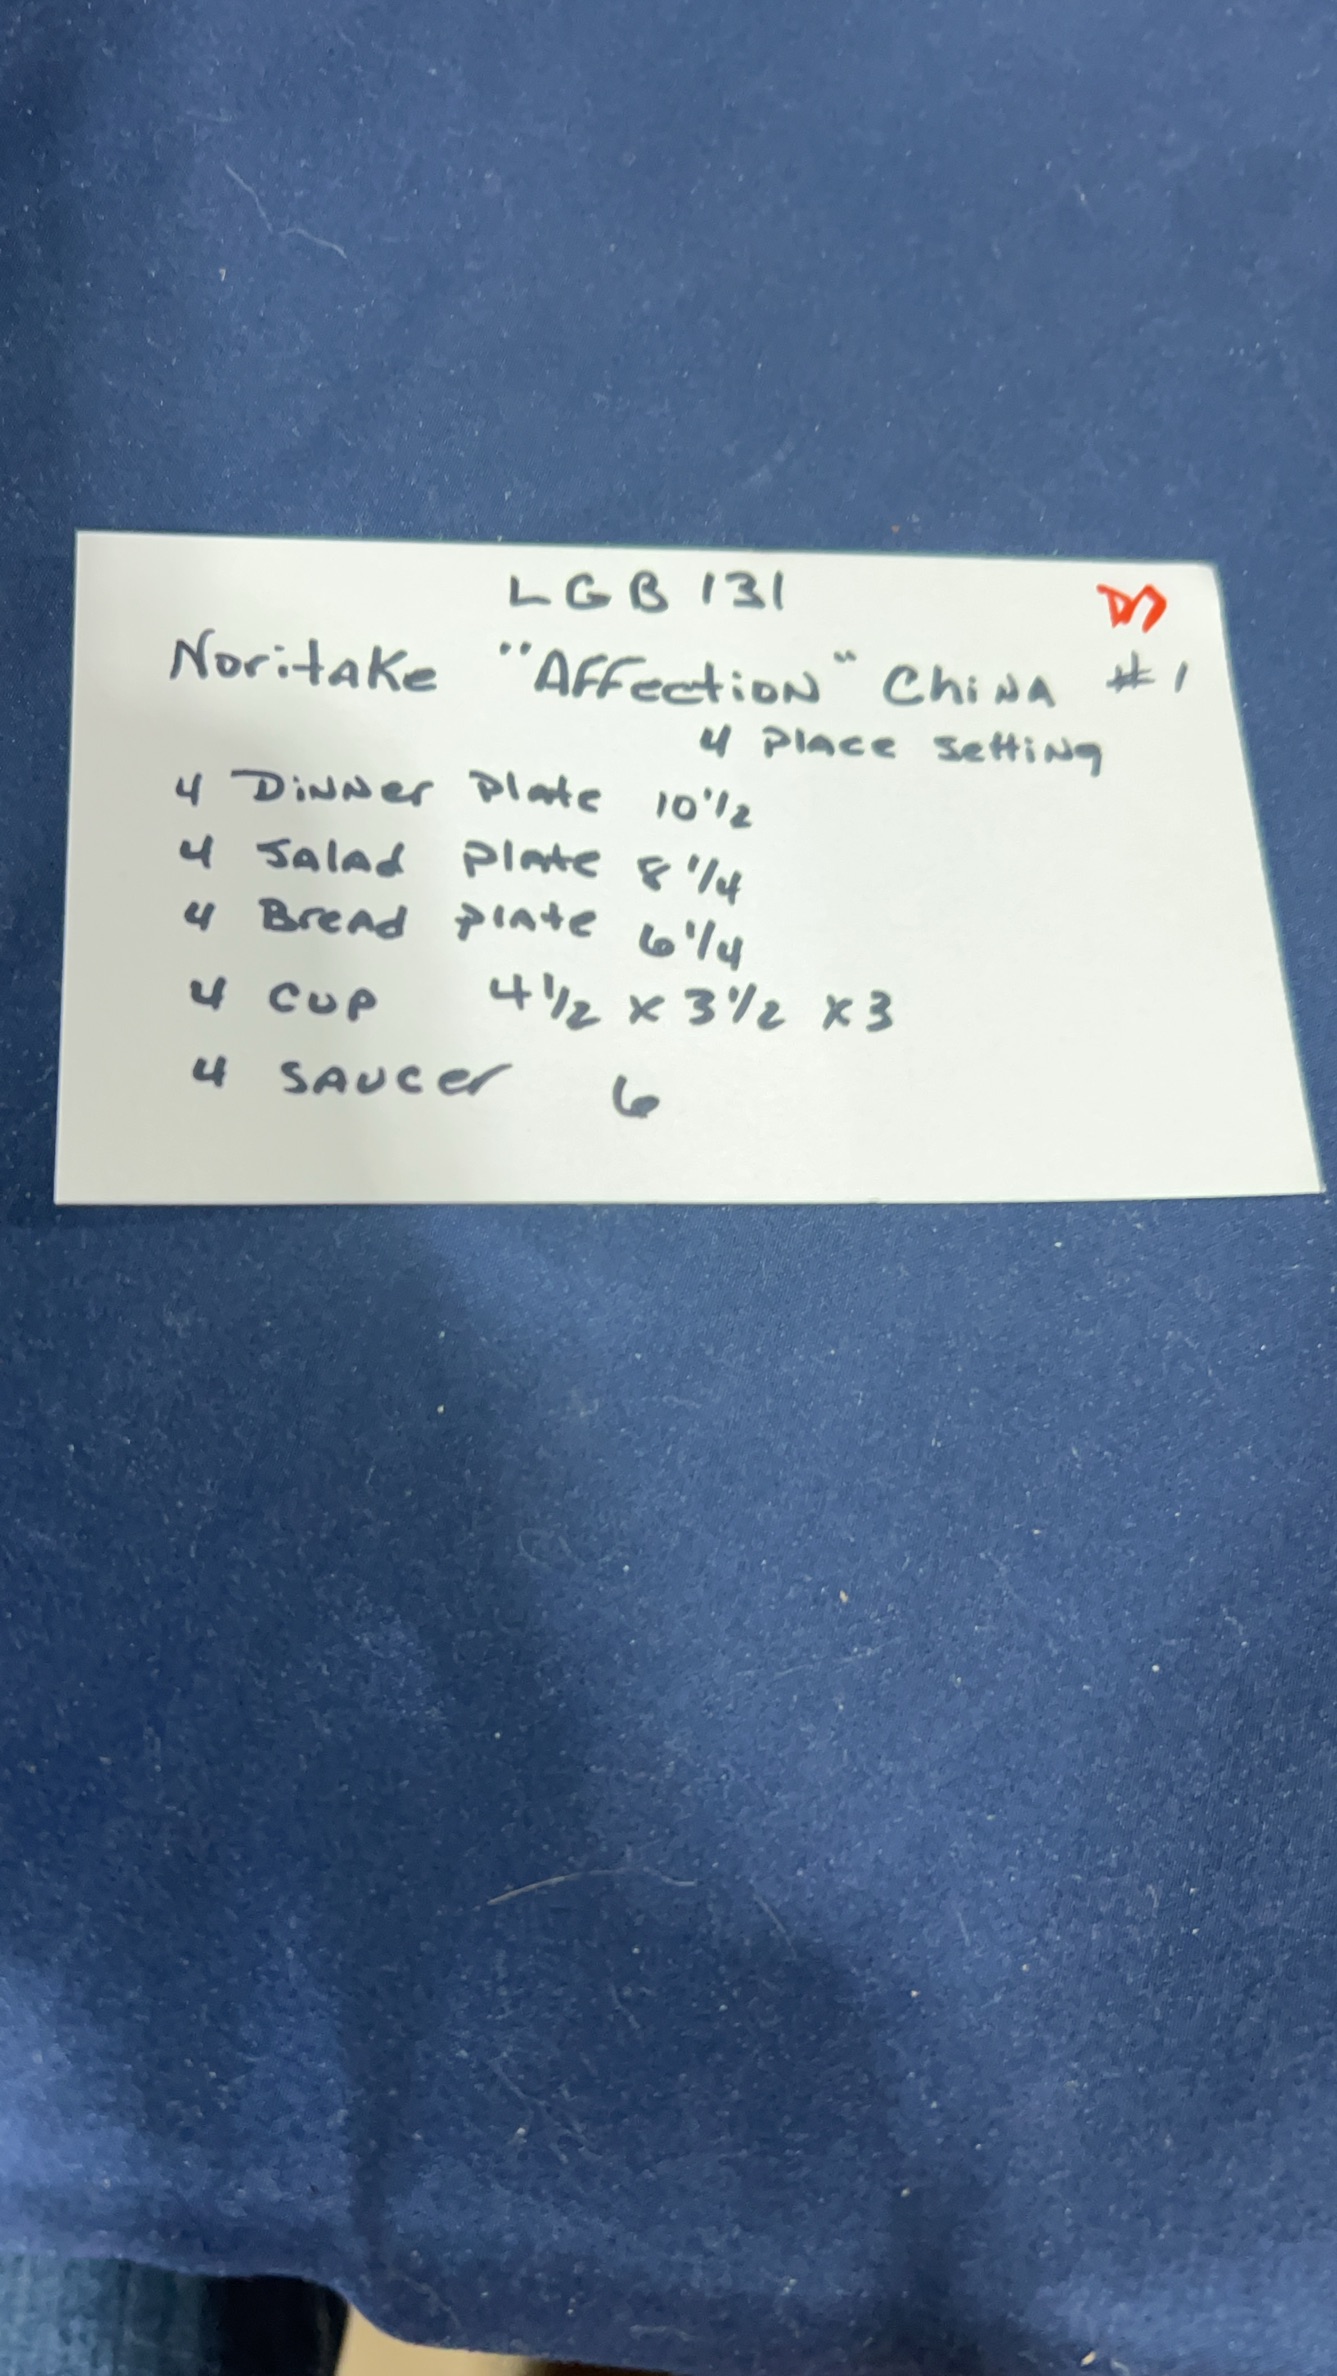 LGB 131
Noritake "Affection" China #1
4 Place Setting
4 Dinner Plate 10 1/2
4 Salad Plate 8 1/4
4 Bread Plate 6 1/4
4 Cup 4 1/2 x 3 1/2 x 3
4 Saucer 6